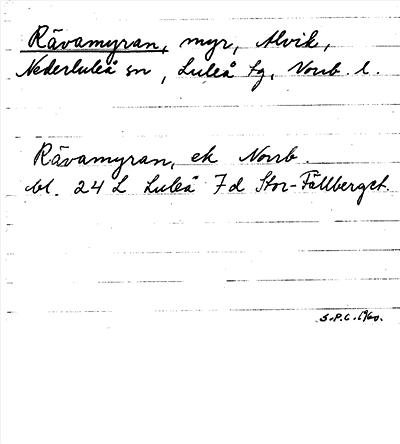 Rävamyran, myr, Alvik,
Nederluleå sn, Luleå tg, Norrb. l.
Rävamyran, ek Norrb.
bl. 24 L Luleå 7d Stor-Fällberget.
S.P.C. 1960.